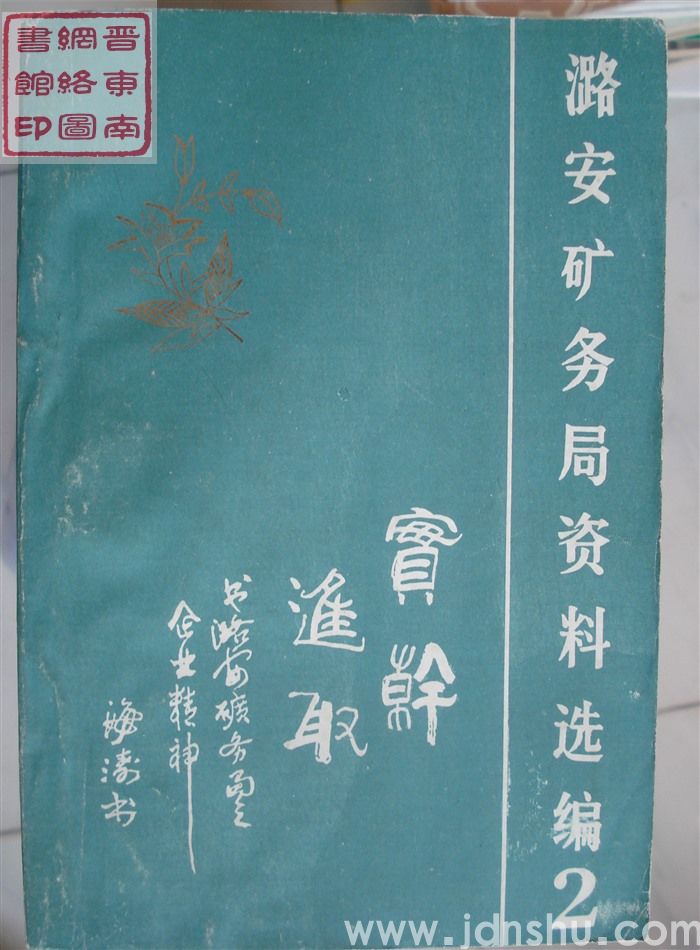 晋東南
網絡圖
書館印
潞安矿务局资料选编2
實幹
進取
书潞安礦务局
企业精神
海涛书
www.jdnshu.com